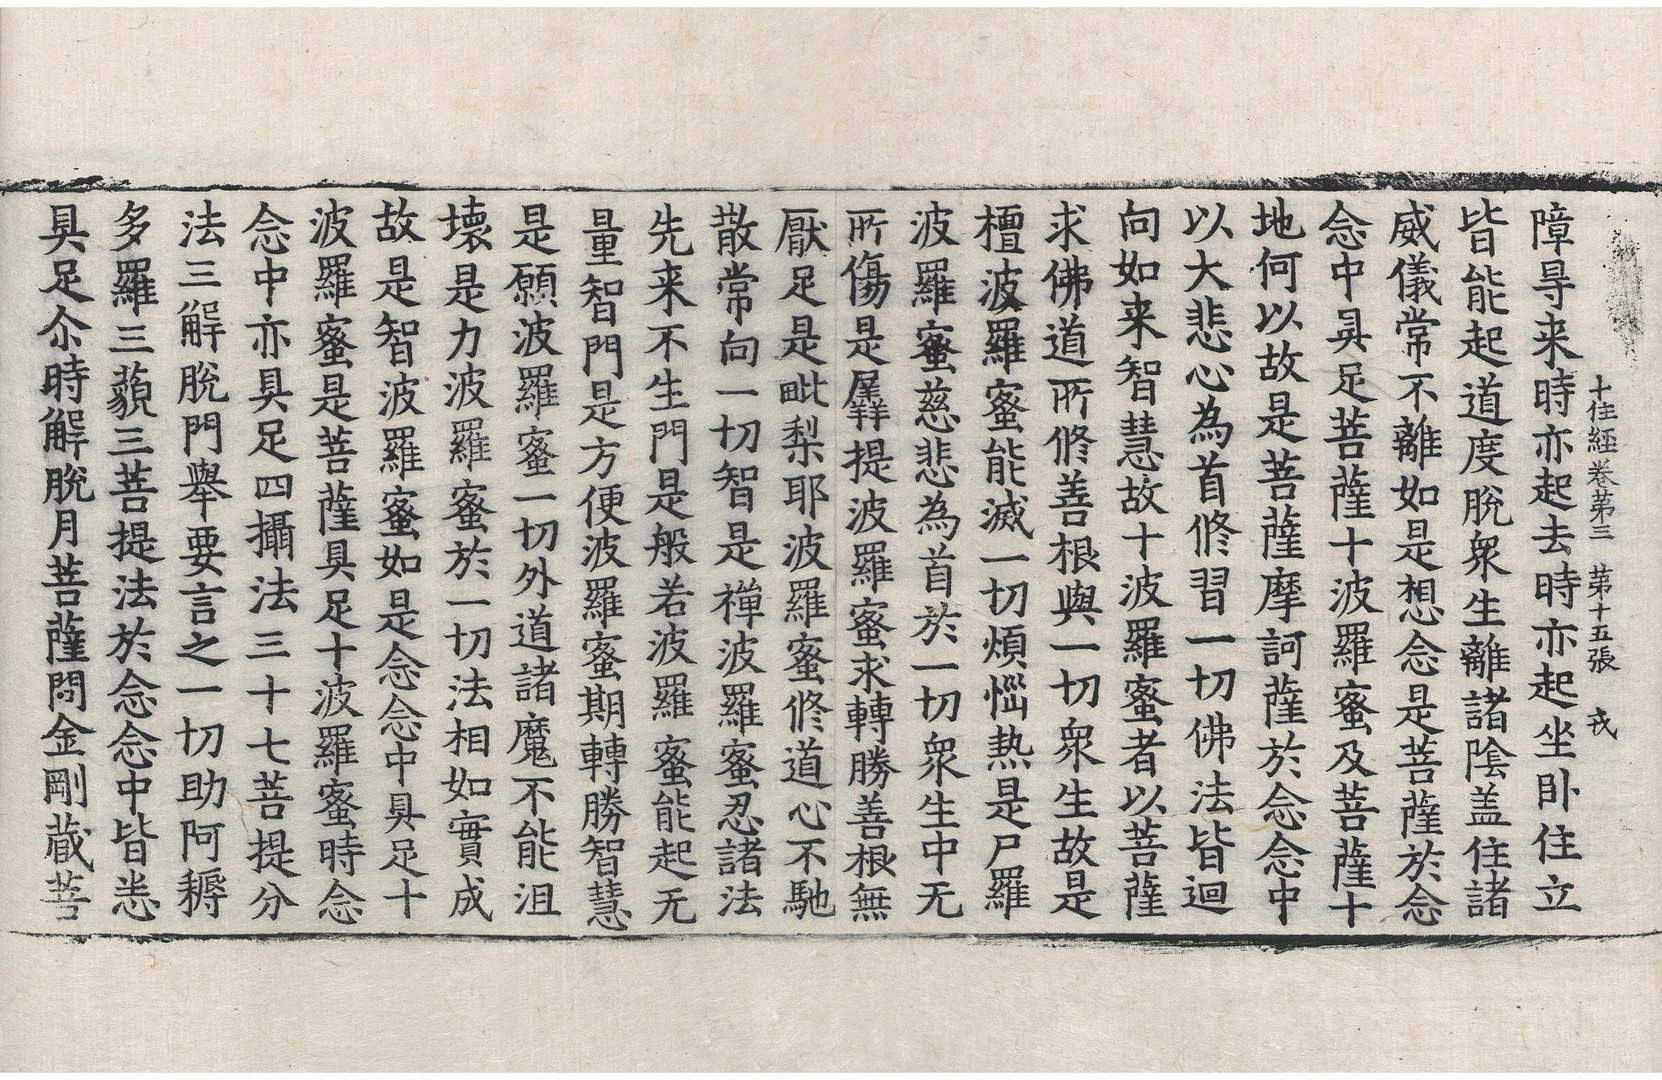 十住經卷第三 第十五張 戎
障㝵来時亦起去時亦起坐卧住立
皆能起道度脫衆生離諸陰盖住諸
威儀常不離如是想念是菩薩於念
念中具足菩薩十波羅蜜及菩薩十
地何以故是菩薩摩訶薩於念念中
以大悲心為首修習一切佛法皆迴
向如来智慧故十波羅蜜者以菩薩
求佛道所修善根與一切衆生故是
檀波羅蜜能滅一切煩惱热是尸羅
波羅蜜慈悲為首於一切衆生中无
所傷是羼提波羅蜜求轉勝善根無
厭足是毗梨耶波羅蜜修道心不馳
散常向一切智是禪波羅蜜忍諸法
先来不生門是般若波羅蜜能起无
量智門是方便波羅蜜期轉勝智慧
是願波羅蜜一切外道諸魔不能沮
壞是力波羅蜜於一切法相如實成
故是智波羅蜜如是念念中具足十
波羅蜜是菩薩具足十波羅蜜時念
念中亦具足四攝法三十七菩提分
法三解脫門舉要言之一切助阿耨
多羅三藐三菩提法於念念中皆悉
具足尒時解脫月菩薩問金剛蔵菩